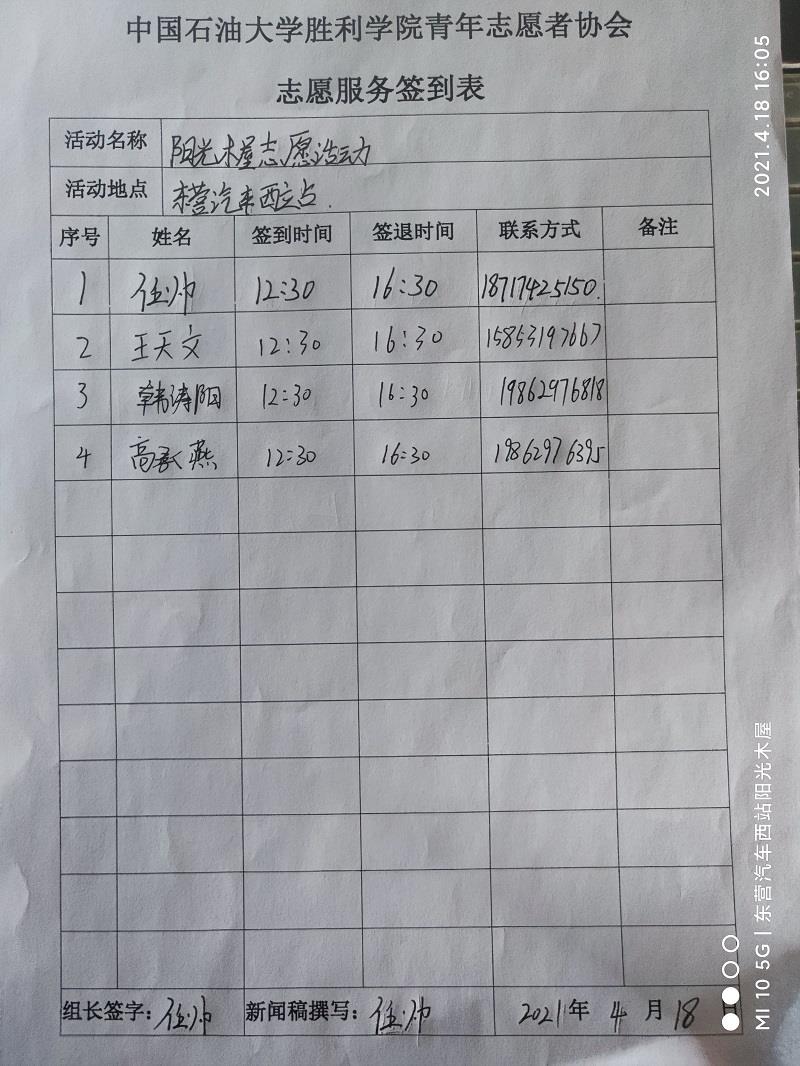 中国石油大学胜利学院青年志愿者协会
志愿服务签到表
活动名称 阳光木屋志愿活动
活动地点 东营汽车西站点.
序号 姓名 签到时间 签退时间 联系方式 备注
1 任帅 12:30 16:30 18717425150.
2 王天文 12:30 16:30 15853197667
3 韩涛阳 12:30 16:30 19862976818
4 高承燕 12:30 16:30 19862976395
组长签字: 任帅 新闻稿撰写: 任帅 2021年 4 月 18 日
2021.4.18 16:05
MI 10 5G | 东营汽车西站阳光木屋